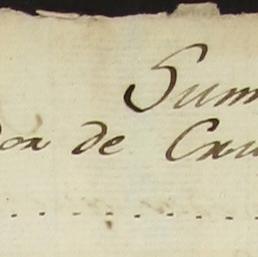 Sum
dor de Cru